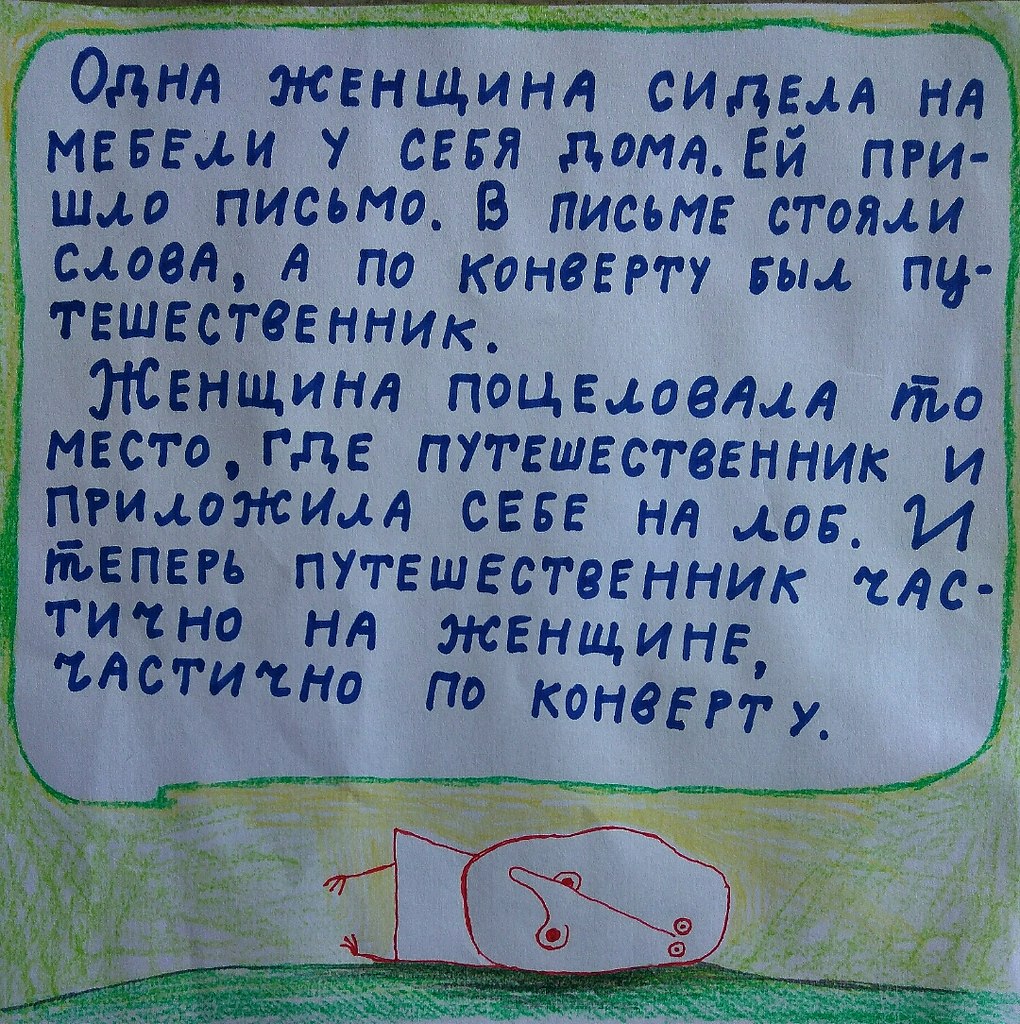 Одна женщина сидела на
мебели у себя дома. Ей при-
шло письмо. В письме стояли
слова, а по конверту был пу-
тешественник.
Женщина поцеловала то
место, где путешественник и
приложила себе на лоб. И
теперь путешественник час-
тично на женщине,
частично по конверту.